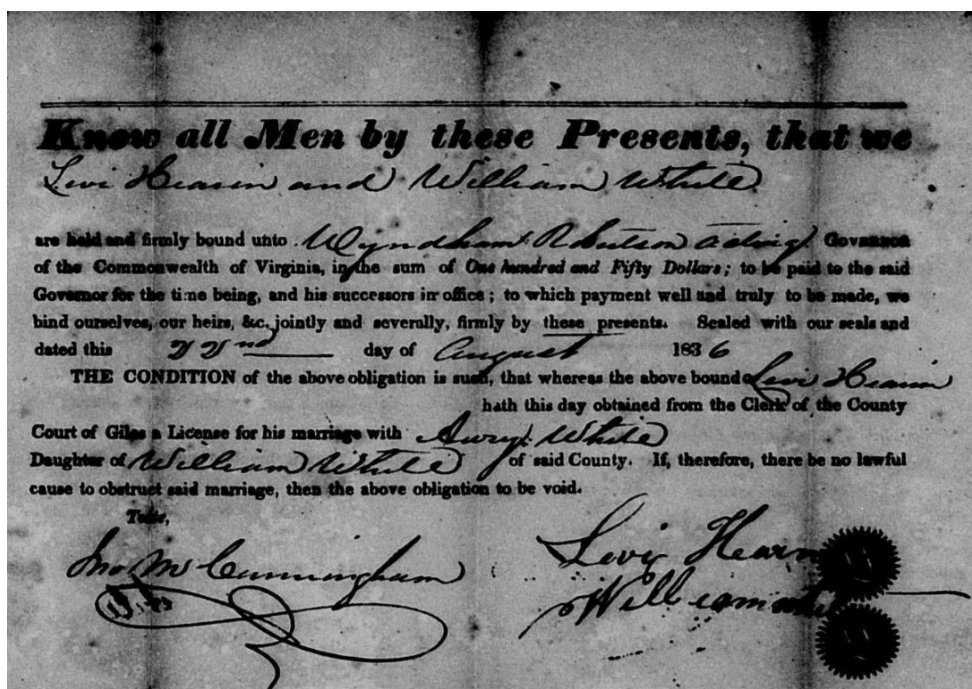 Know all Men by these Presents, that we
Levi Hearin and William White
are held and firmly bound unto Wyndham Robertson Acting Governor
of the Commonwealth of Virginia, in the sum of One hundred and Fifty Dollars; to be paid to the said
Governor for the time being, and his successors in office; to which payment well and truly to be made, we
bind ourselves, our heirs, &c. jointly and severally, firmly by these presents. Sealed with our seals and
dated this 22nd day of August 1836
THE CONDITION of the above obligation is such, that whereas the above bound Levi Hearin
hath this day obtained from the Clerk of the County
Court of Giles a License for his marriage with White
Daughter of William White of said County. If, therefore, there be no lawful
cause to obstruct said marriage, then the above obligation to be void.
Teste,
Jno McCunningham
Levi Hearn
William White